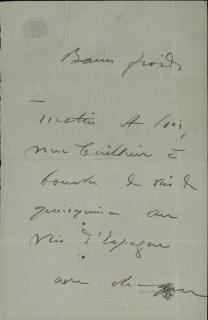 Bains froids
matin & soir,
une Cuillère à
bouche de vin de
quinquina au
Vin d'Espagne
avec